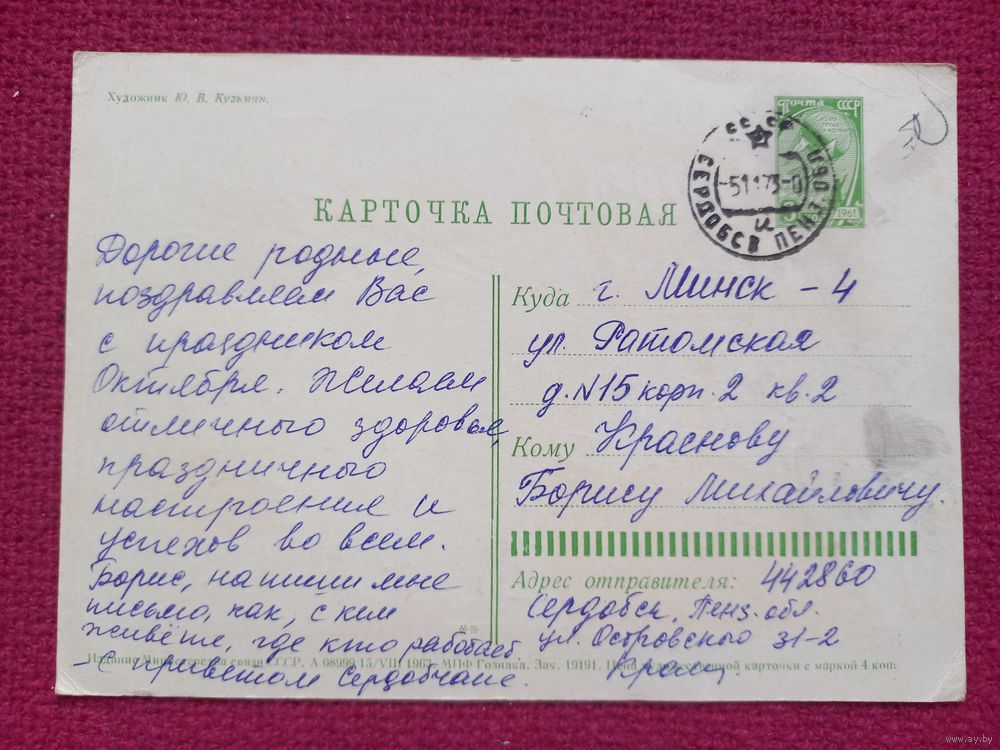 Художник Ю. В. Кузьмин.
ПОЧТА СССР
1961
СЕРДОБСК ПЕНЗ. ОБЛ
КАРТОЧКА ПОЧТОВАЯ
Дорогие родные,
поздравляем Вас
с праздником
Октября. Желаем
отличного здоровья,
праздничного
настроения и
успехов во всем.
Борис, напиши мне
письмо, как, с кем
живёте, где кто работает.
С приветом Сердобчане.
Куда г. Минск - 4
ул. Ратомская
д. N15 корп. 2 кв. 2
Кому Краснову
Борису Михайловичу.
Адрес отправителя: 442860
Сердобск, Пенз. обл.
ул. Островского 31-2
Издание Министерства связи СССР. А 08999 15/VIII 1963 МПФ Гознака. Зак. 19191. Цена художественной карточки с маркой 4 коп.
www.ay.by